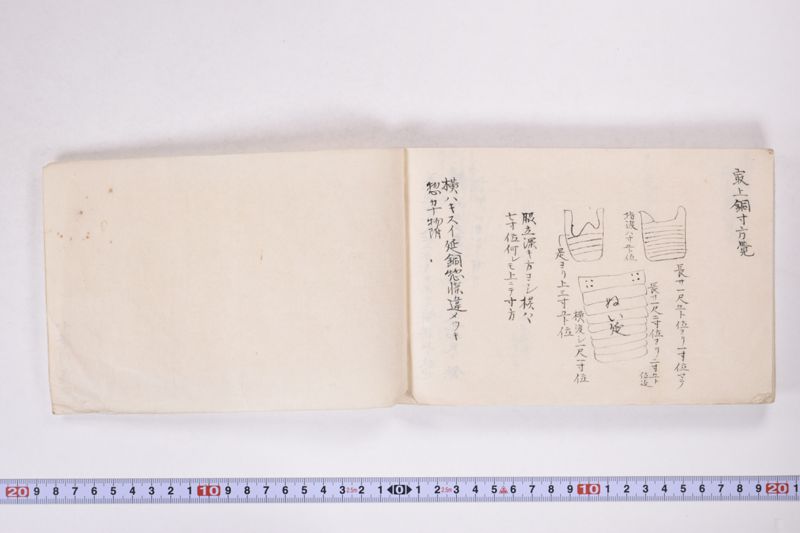 最上銅寸方覺
長サ一尺五ト位ヨリ一寸位マテ
指渡八寸五ト位
長サ一尺二寸位ヨリ二寸五ト
位迄
ぬい延
横渡シ一尺一寸位
是ヨリ上エ寸五ト位
脇立深キ方ヨシ横ハ
七寸位何レモ上ニテ寸方
横ハキスイ延銅惣𣜌違メツキ
惣カナ物隋
20 9 8 7 6 5 4 3 2 1 10 9 8 7 6 5 4 3 2 1 0 1 2 3 4 5 6 7 8 9 10 1 2 3 4 5 6 7 8 9 20 1